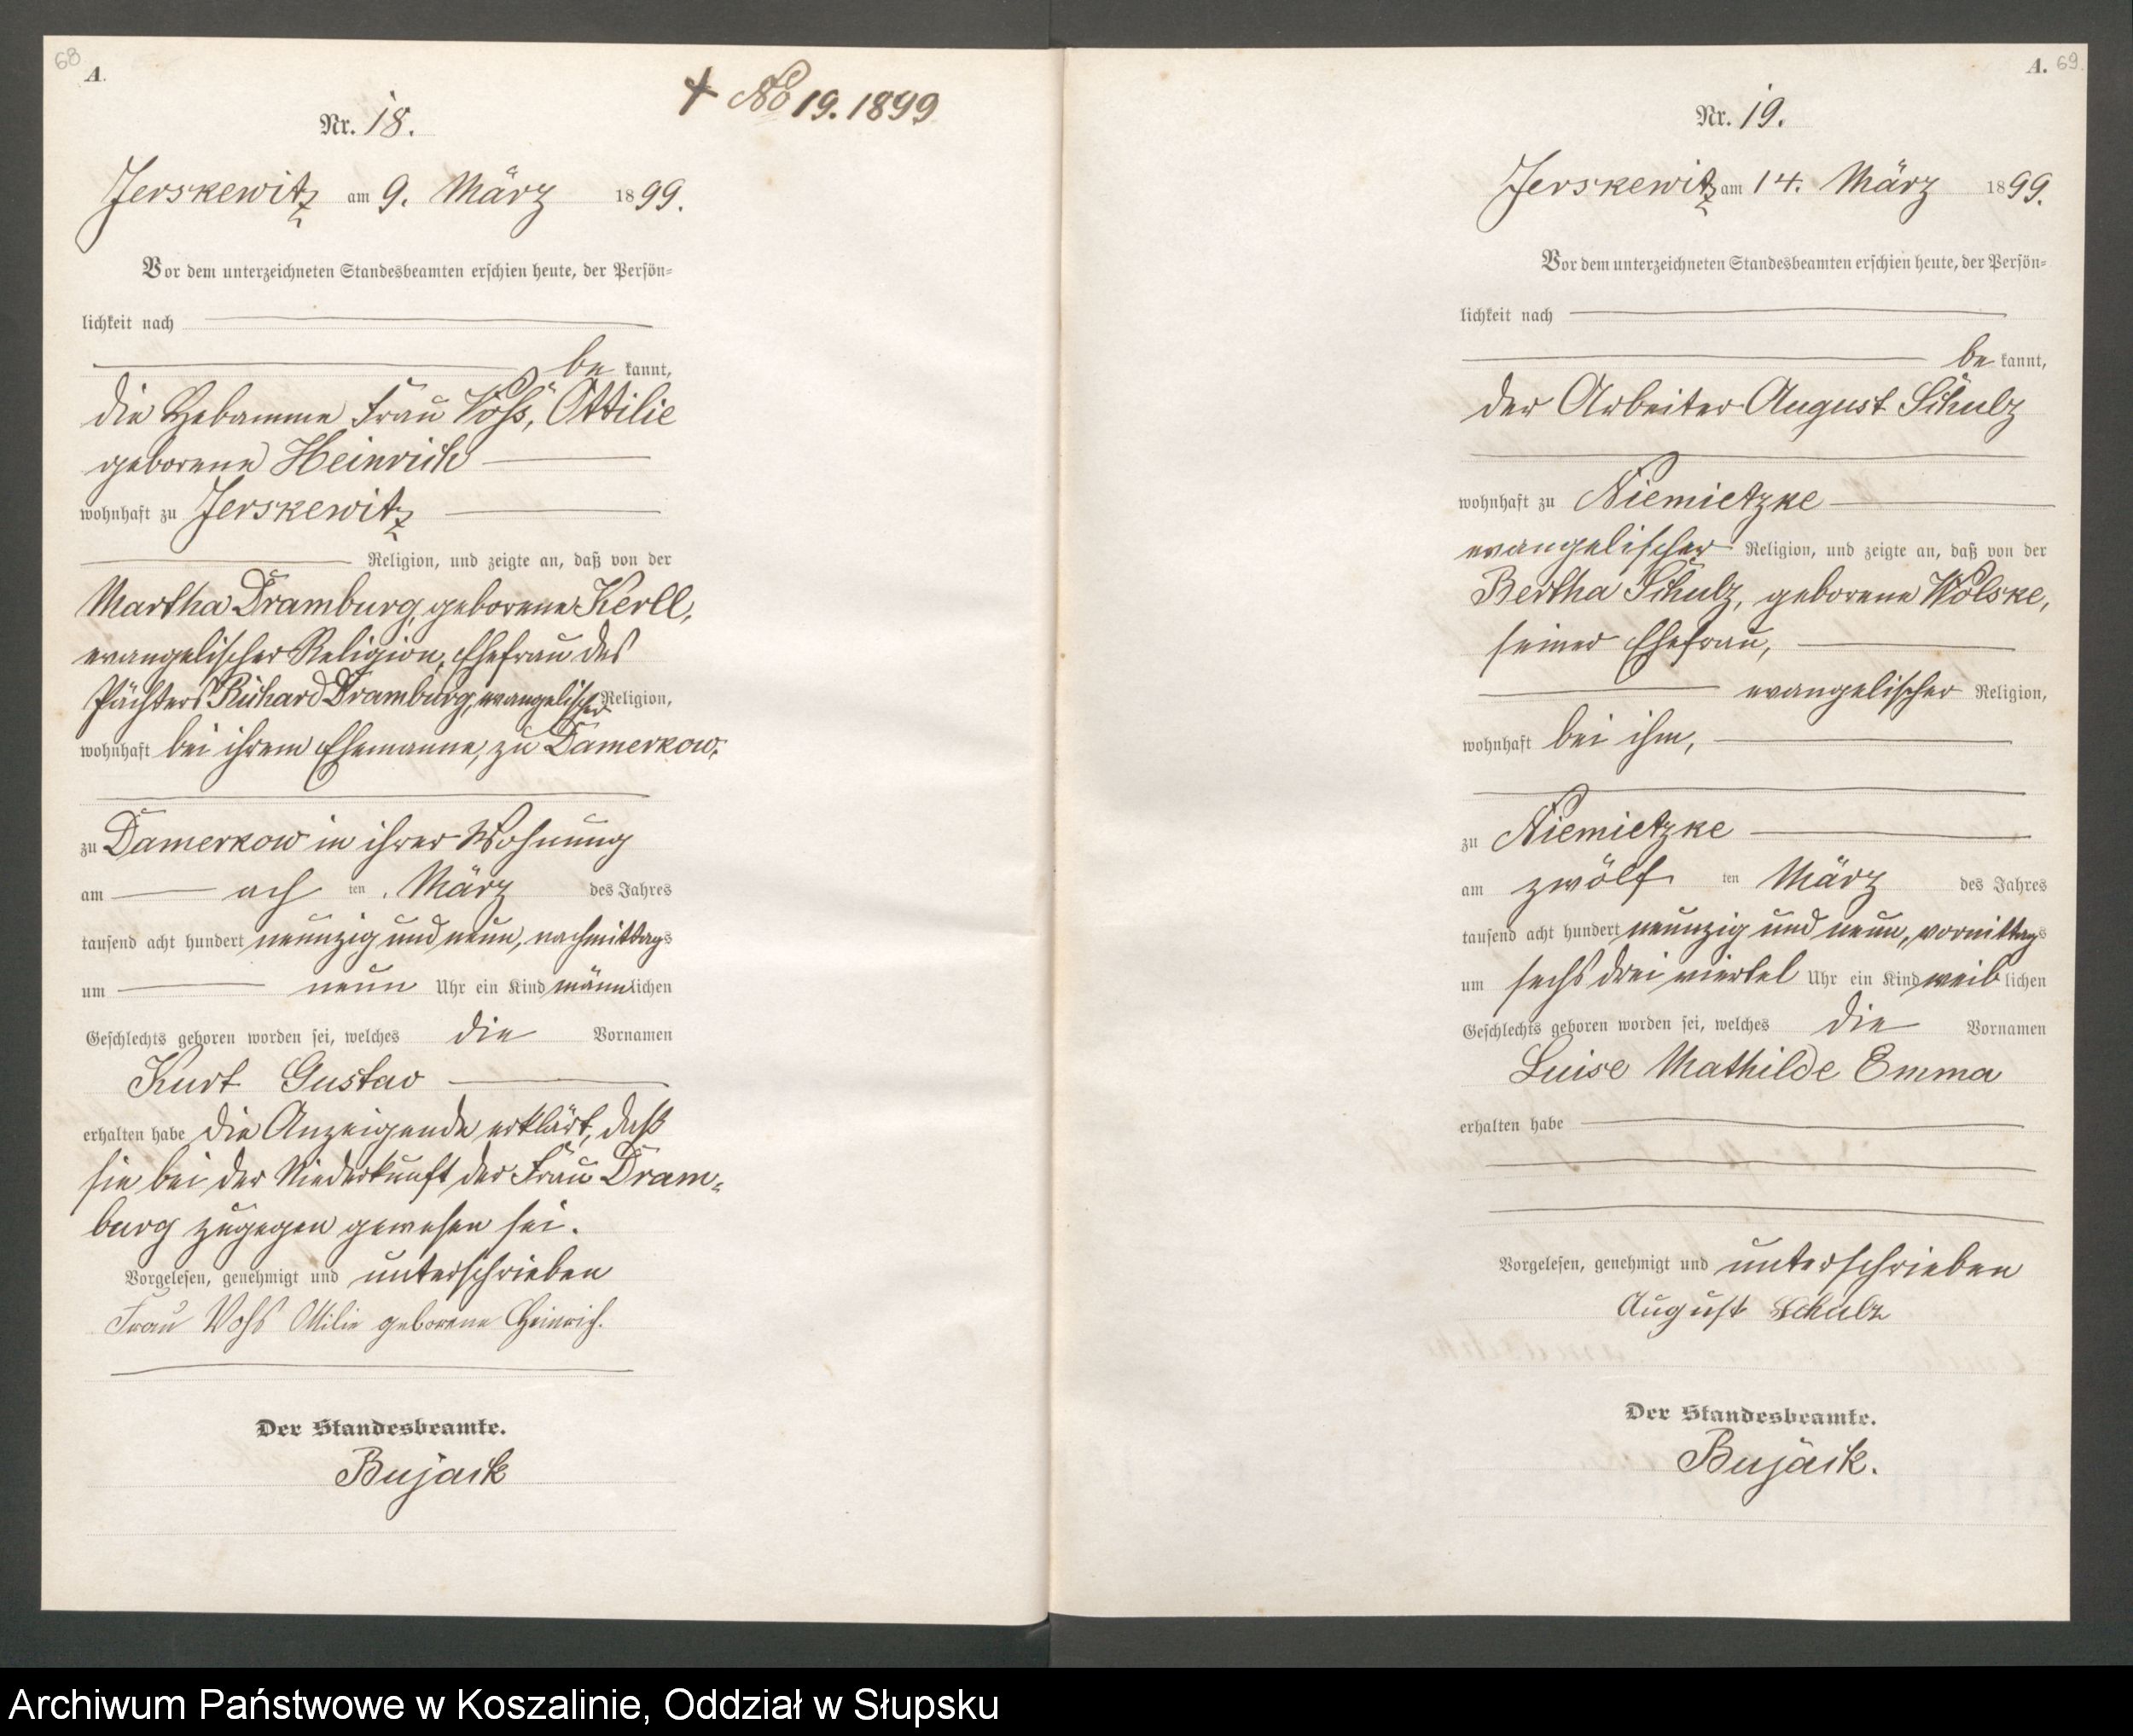 68
A.
Nr. 18.
† No 19. 1899
Jerskewitz am 9. März 1899.
Vor dem unterzeichneten Standesbeamten erschien heute, der Persön=
lichkeit nach
be kannt,
die Hebamme Frau Voß, Ottilie
geborene Heinrich
wohnhaft zu Jerskewitz
Religion, und zeigte an, daß von der
Martha Dramburg, geborene Kerll,
evangelischer Religion, Ehefrau des
Pächters Richard Dramburg, evangelischer Religion,
wohnhaft bei ihrem Ehemanne, zu Damerkow,
zu Damerkow in ihrer Wohnung
am ach ten März des Jahres
tausend acht hundert neunzig und neun, nachmittags
um neun Uhr ein Kind männlichen
Geschlechts geboren worden sei, welches die Vornamen
Kurt Gustav
erhalten habe die Anzeigende erklärt, daß
sie bei der Niederkunft der Frau Dram=
burg zugegen gewesen sei.
Vorgelesen, genehmigt und unterschrieben
Frau Vohs Ottilie geborene Heinrich.
Der Standesbeamte.
Bujack
A. 69.
Nr. 19.
Jerskewitz am 14. März 1899.
Vor dem unterzeichneten Standesbeamten erschien heute, der Persön=
lichkeit nach
be kannt,
der Arbeiter August Schulz
wohnhaft zu Niemietzke
evangelischer Religion, und zeigte an, daß von der
Bertha Schulz, geborene Wolske,
seiner Ehefrau,
evangelischer Religion,
wohnhaft bei ihm,
zu Niemietzke
am zwölf ten März des Jahres
tausend acht hundert neunzig und neun, vormittags
um sechs drei viertel Uhr ein Kind weib lichen
Geschlechts geboren worden sei, welches die Vornamen
Luise Mathilde Emma
erhalten habe
Vorgelesen, genehmigt und unterschrieben
August Schulz
Der Standesbeamte.
Bujack.
Archiwum Państwowe w Koszalinie, Oddział w Słupsku